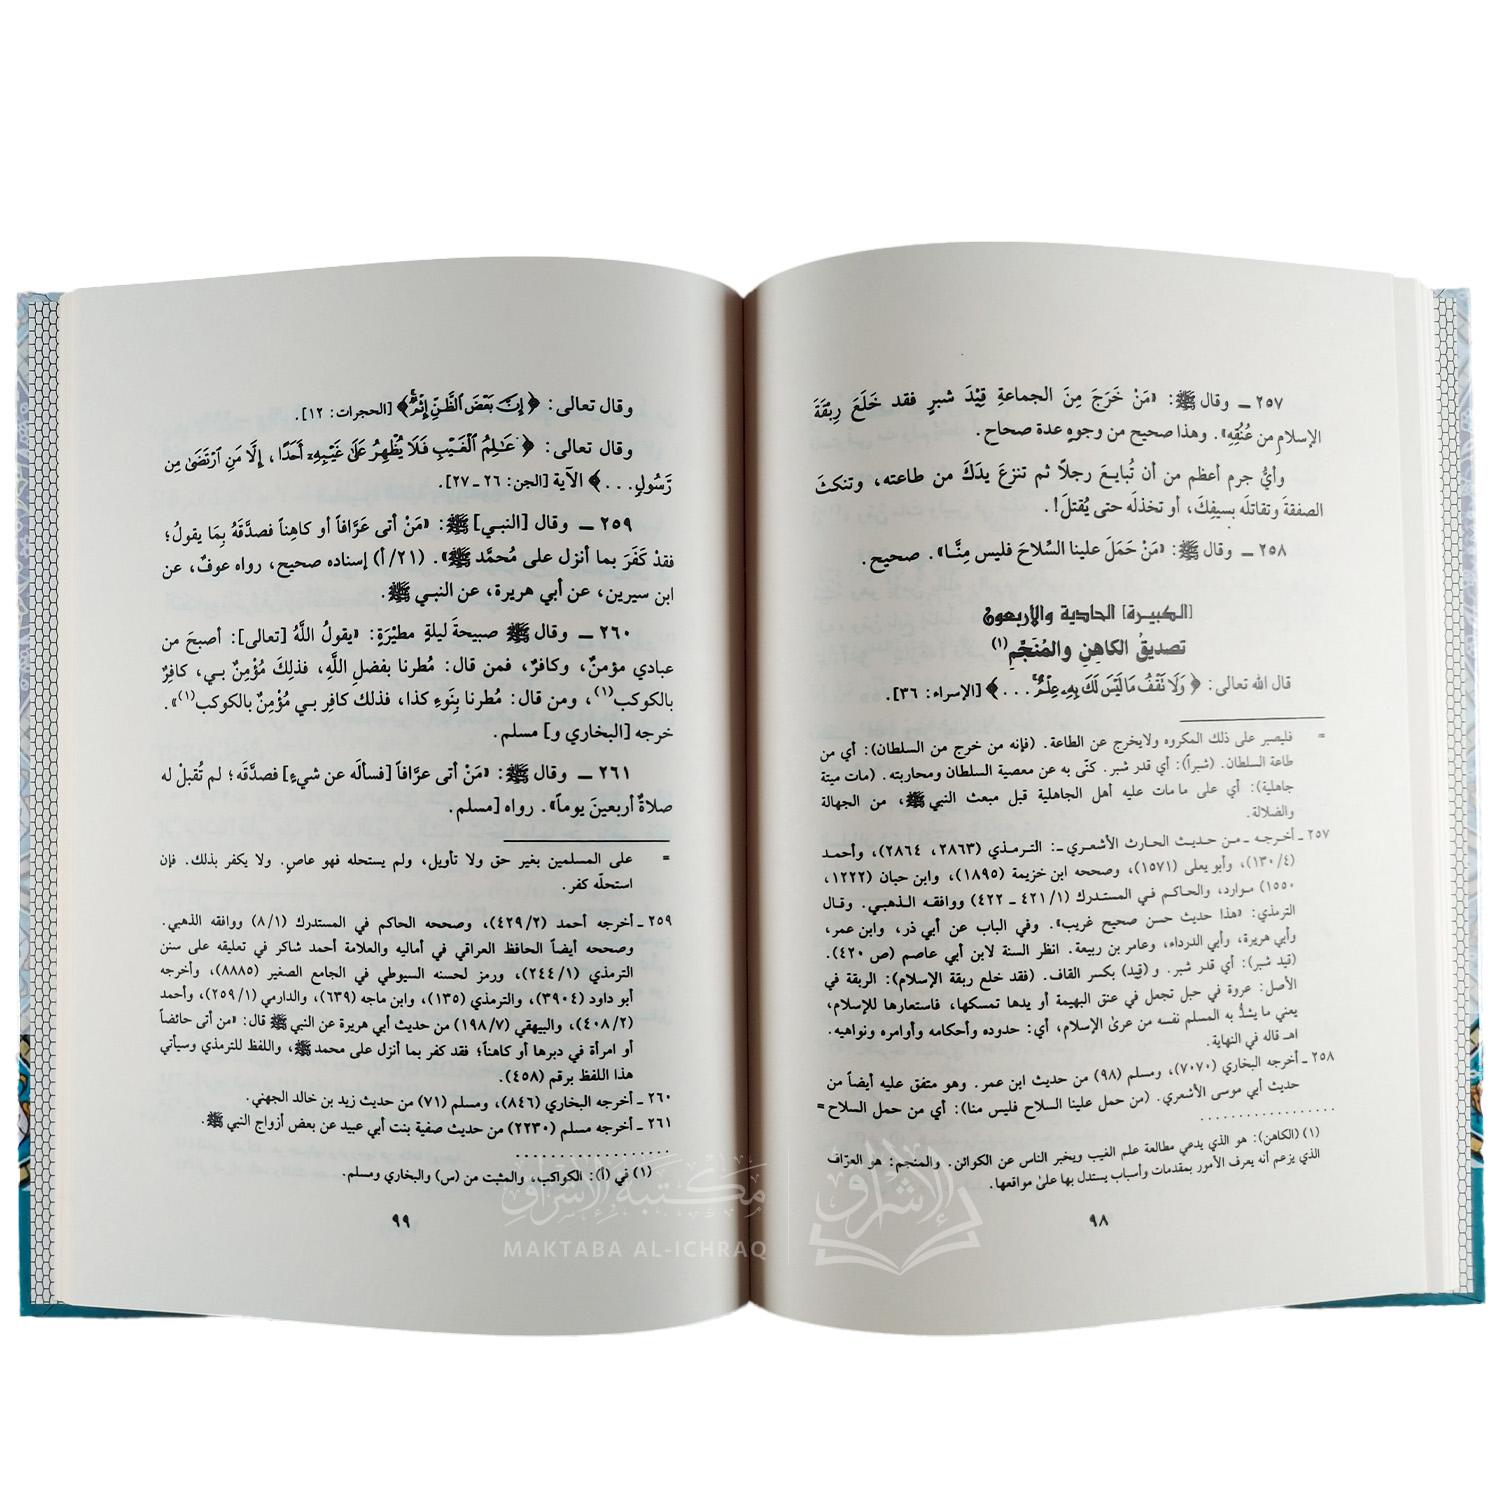 ٢٥٧ ـ وقال ﷺ: «مَنْ خَرَجَ مِنَ الجماعةِ قِيْدَ شبرٍ فقد خَلَعَ رِبْقَةَ
الإسلامِ من عُنُقِهِ». وهذا صحيح من وجوهٍ عدة صحاح.
وأيُّ جرم أعظم من أن تُبايـعَ رجلاً ثم تنزعَ يدَكَ من طاعته، وتنكثَ
الصفقةَ وتقاتلَه بسيفِكَ، أو تخذلَه حتى يُقتلَ!.
٢٥٨ ـ وقال ﷺ: «مَنْ حَمَلَ علينا السِّلاحَ فليس مِنَّـا». صحيح.
[الكبيرة] الحادية والأربعون
تصديقُ الكاهِنِ والمُنَجِّمِ(١)
قال الله تعالى: ﴿ وَلَا نَقْفُ مَا لَيْسَ لَكَ بِهِۦ عِلْمٌ ... ﴾ [الإسراء: ٣٦].
= فليصبر على ذلك المكروه ولايخرج عن الطاعة. (فإنه من خرج من السلطان): أي من
طاعة السلطان. (شبراً): أي قدر شبر. كنّى به عن معصية السلطان ومحاربته. (مات ميتة
جاهلية): أي على مامات عليه أهل الجاهلية قبل مبعث النبي ﷺ، من الجهالة
والضلالة.
٢٥٧ ـ أخرجـه ـ مـن حديـث الحارث الأشعـري ـ: التـرمذي (٢٨٦٣، ٢٨٦٤)، وأحمـد
(١٣٠/٤)، وأبو يعلى (١٥٧١)، وصححه ابن خزيمة (١٨٩٥)، وابن حبان (١٢٢٢،
١٥٥٠) موارد، والحاكـم فـي المستدرك (٤٢١/١ ـ ٤٢٢) ووافقـه الـذهبي. وقـال
الترمذي: «هذا حديث حسن صحيح غريب». وفي الباب عن أبي ذر، وابن عمر،
وأبي هريرة، وأبي الدرداء، وعامر بن ربيعة. انظر السنة لابن أبي عاصم (ص ٤٢٠).
(قيد شبر): أي قدر شبر. و(قِيد) بكسر القاف. (فقد خلع ربقة الإسلام): الربقة في
الأصل: عروة في حبل تجعل في عنق البهيمة أو يدها تمسكها، فاستعارها للإسلام،
يعني ما يشدُّ به المسلم نفسه من عرىٰ الإسلام، أي: حدوده وأحكامه وأوامره ونواهيه.
اهـ قاله في النهاية.
٢٥٨ ـ أخرجه البخاري (٧٠٧٠)، ومسلم (٩٨) من حديث ابن عمر. وهو متفق عليه أيضاً من
حديث أبي موسى الأشعري. (من حمل علينا السلاح فليس منا): أي من حمل السلاح =
(١) (الكاهن): هو الذي يدعي مطالعة علم الغيب ويخبر الناس عن الكوائن. والمنجم: هو العرّاف
الذي يزعم أنه يعرف الأمور بمقدمات وأسباب يستدل بها علىٰ مواقعها.
٩٨
وقال تعالى: ﴿ إِنَّ بَعْضَ ٱلظَّنِّ إِثْمٌ ﴾ [الحجرات: ١٢].
وقال تعالى: ﴿ عَـٰلِمُ ٱلْغَيْبِ فَلَا يُظْهِرُ عَلَىٰ غَيْبِهِۦ أَحَدًا ، إِلَّا مَنِ ٱرْتَضَىٰ مِن
رَّسُولٍ ... ﴾ الآية [الجن: ٢٦ ـ ٢٧].
٢٥٩ ـ وقال [النبي] ﷺ: «مَنْ أتى عَرَّافاً أو كاهِناً فصدَّقَهُ بِمَا يقولُ؛
فقدْ كَفَرَ بما أنزل على مُحمَّد ﷺ». (٢١/أ) إسناده صحيح، رواه عوفٌ، عن
ابن سيرين، عن أبي هريرة، عن النبـي ﷺ.
٢٦٠ ـ وقال ﷺ صبيحةَ ليلةٍ مطيْرَةٍ: «يقولُ اللَّهُ [تعالى]: أصبحَ من
عبادي مؤمنٌ، وكافرٌ، فمن قال: مُطرنا بفضلِ اللَّهِ، فذلِكَ مُؤْمِنٌ بـي، كافِرٌ
بالكوكبِ(١)، ومن قال: مُطرنا بِنَوءِ كذا، فذلك كافِر بـي مُؤْمِنٌ بالكوكب(١)».
خرجه [البخاري و] مسلم.
٢٦١ ـ وقال ﷺ: «مَنْ أتى عرَّافاً [فسألَه عن شيءٍ] فصدَّقَه؛ لم تُقبلْ له
صلاةٌ أربعينَ يوماً». رواه [مسلم.
= على المسلمين بغير حق ولا تأويل، ولم يستحله فهو عاصٍ. ولا يكفر بذلك. فإن
استحلّه كفر.
٢٥٩ ـ أخرجه أحمد (٤٢٩/٢)، وصححه الحاكم في المستدرك (٨/١) ووافقه الذهبي.
وصححه أيضاً الحافظ العراقي في أماليه والعلامة أحمد شاكر في تعليقه على سنن
الترمذي (٢٤٤/١)، ورمز لحسنه السيوطي في الجامع الصغير (٨٨٨٥)، وأخرجه
أبو داود (٣٩٠٤)، والترمذي (١٣٥)، وابن ماجه (٦٣٩)، والدارمي (٢٥٩/١)، وأحمد
(٤٠٨/٢)، والبيهقي (١٩٨/٧) من حديث أبي هريرة عن النبي ﷺ قال: «من أتى حائضاً
أو امرأة في دبرها أو كاهناً؛ فقد كفر بما أنزل على محمد ﷺ، واللفظ للترمذي وسيأتي
هذا اللفظ برقم (٤٥٨).
٢٦٠ ـ أخرجه البخاري (٨٤٦)، ومسلم (٧١) من حديث زيد بن خالد الجهني.
٢٦١ ـ أخرجه مسلم (٢٢٣٠) من حديث صفية بنت أبي عبيد عن بعض أزواج النبي ﷺ.
(١) في (أ): الكواكب، والمثبت من (س) والبخاري ومسلم.
٩٩
مكتبة الإشراق
MAKTABA AL-ICHRAQ
الإشراق